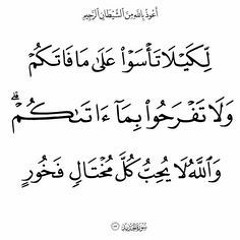 أعوذ بالله من الشيطان الرجيم
لِّكَيْلَا تَأْسَوْا۟ عَلَىٰ مَا فَاتَكُمْ
وَلَا تَفْرَحُوا۟ بِمَآ ءَاتَىٰكُمْ ۗ
وَٱللَّهُ لَا يُحِبُّ كُلَّ مُخْتَالٍ فَخُورٍ
سورة الحديد